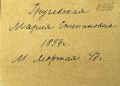 Грушевская
Мария Степановна
1897г.
М. Мортная 47.